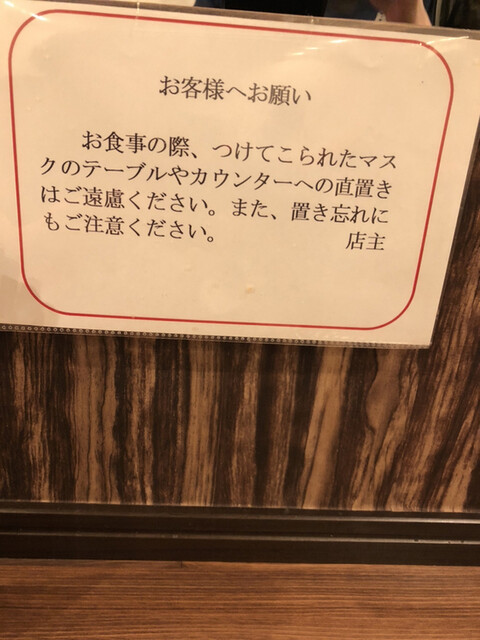 お客様へお願い
お食事の際、つけてこられたマス
クのテーブルやカウンターへの直置き
はご遠慮ください。また、置き忘れに
もご注意ください。 店主